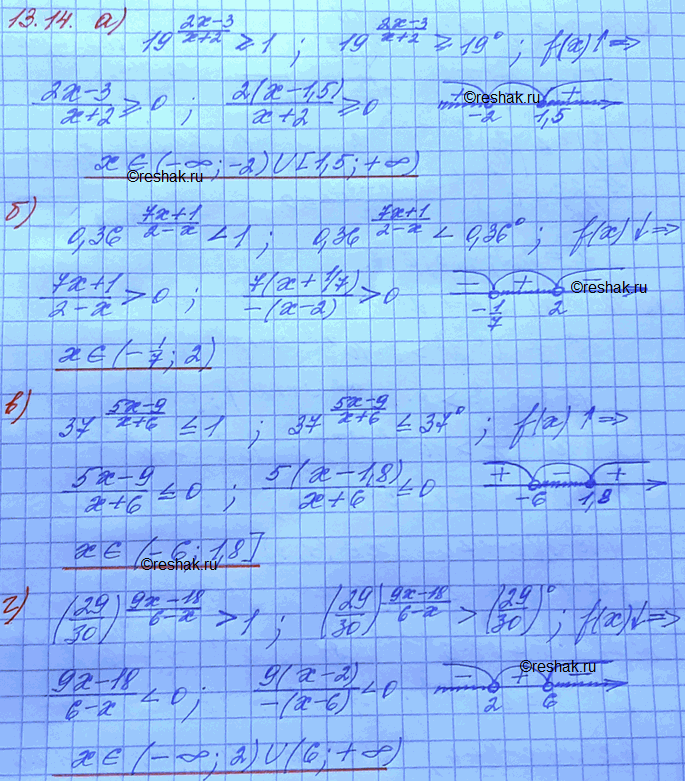 13.14. а) 19^((2x-3)/(x+2)) ≥ 1 ; 19^((2x-3)/(x+2)) ≥ 19^0 ; f(x)↑⇒
(2x-3)/(x+2) ≥ 0 ; 2(x-1,5)/(x+2) ≥ 0 + - + -2 1,5
©reshak.ru
x ∈ (-∞; -2) ∪ [1,5; +∞)
©reshak.ru
б) 0,36^((7x+1)/(2-x)) < 1 ; 0,36^((7x+1)/(2-x)) < 0,36^0 ; f(x)↓⇒
(7x+1)/(2-x) > 0 ; 7(x+1/7)/(-(x-2)) > 0 - + - -1/7 2
©reshak.ru
x ∈ (-1/7; 2)
в) 37^((5x-9)/(x+6)) ≤ 1 ; 37^((5x-9)/(x+6)) ≤ 37^0 ; f(x)↑⇒
(5x-9)/(x+6) ≤ 0 ; 5(x-1,8)/(x+6) ≤ 0 + - + -6 1,8
x ∈ (-6; 1,8]
©reshak.ru
г) (29/30)^((9x-18)/(6-x)) > 1 ; (29/30)^((9x-18)/(6-x)) > (29/30)^0 ; f(x)↓⇒
(9x-18)/(6-x) < 0 ; 9(x-2)/(-(x-6)) < 0 - + - 2 6
©reshak.ru
x ∈ (-∞; 2) ∪ (6; +∞)